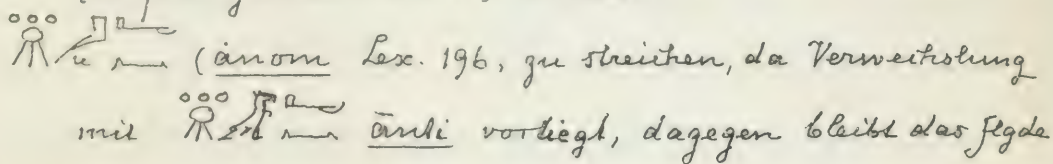 (ȧnom Lex. 196, zu streichen, da Verwechslung
mit ānti vorliegt, dagegen bleibt das flgde